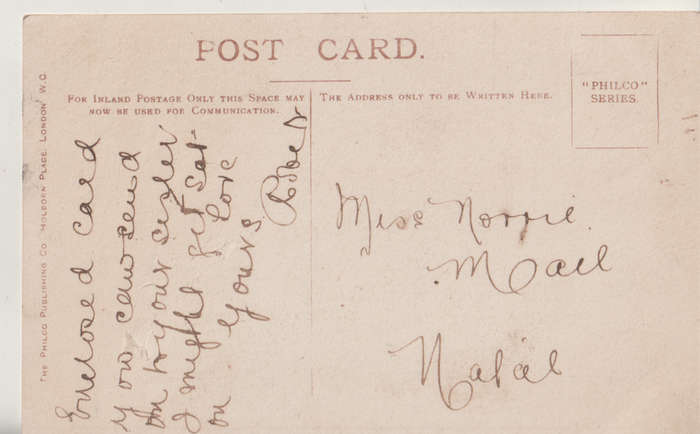 POST CARD.
FOR INLAND POSTAGE ONLY THIS SPACE MAY
NOW BE USED FOR COMMUNICATION.
THE ADDRESS ONLY TO BE WRITTEN HERE.
"PHILCO"
SERIES.
THE PHILCO PUBLISHING CO. HOLBORN PLACE, LONDON W.C.
Enclosed card
you can send
on to your sister
I might get Sat-
on. love
Yours
Miss Norrie
Mall
Natal